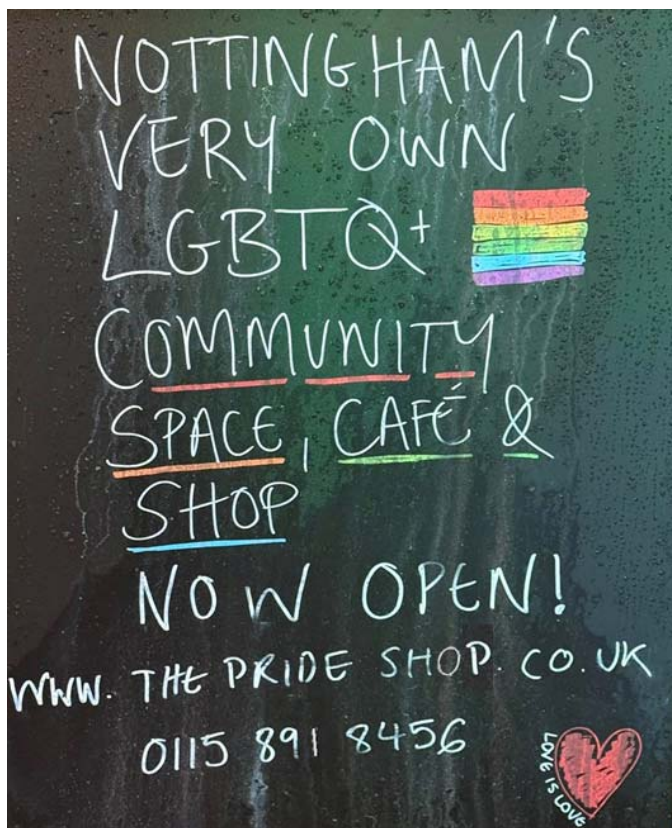 NOTTINGHAM'S
VERY OWN
LGBTQ+
COMMUNITY
SPACE, CAFÉ &
SHOP
NOW OPEN!
WWW. THE PRIDE SHOP. CO. UK
0115 891 8456
LOVE IS LOVE